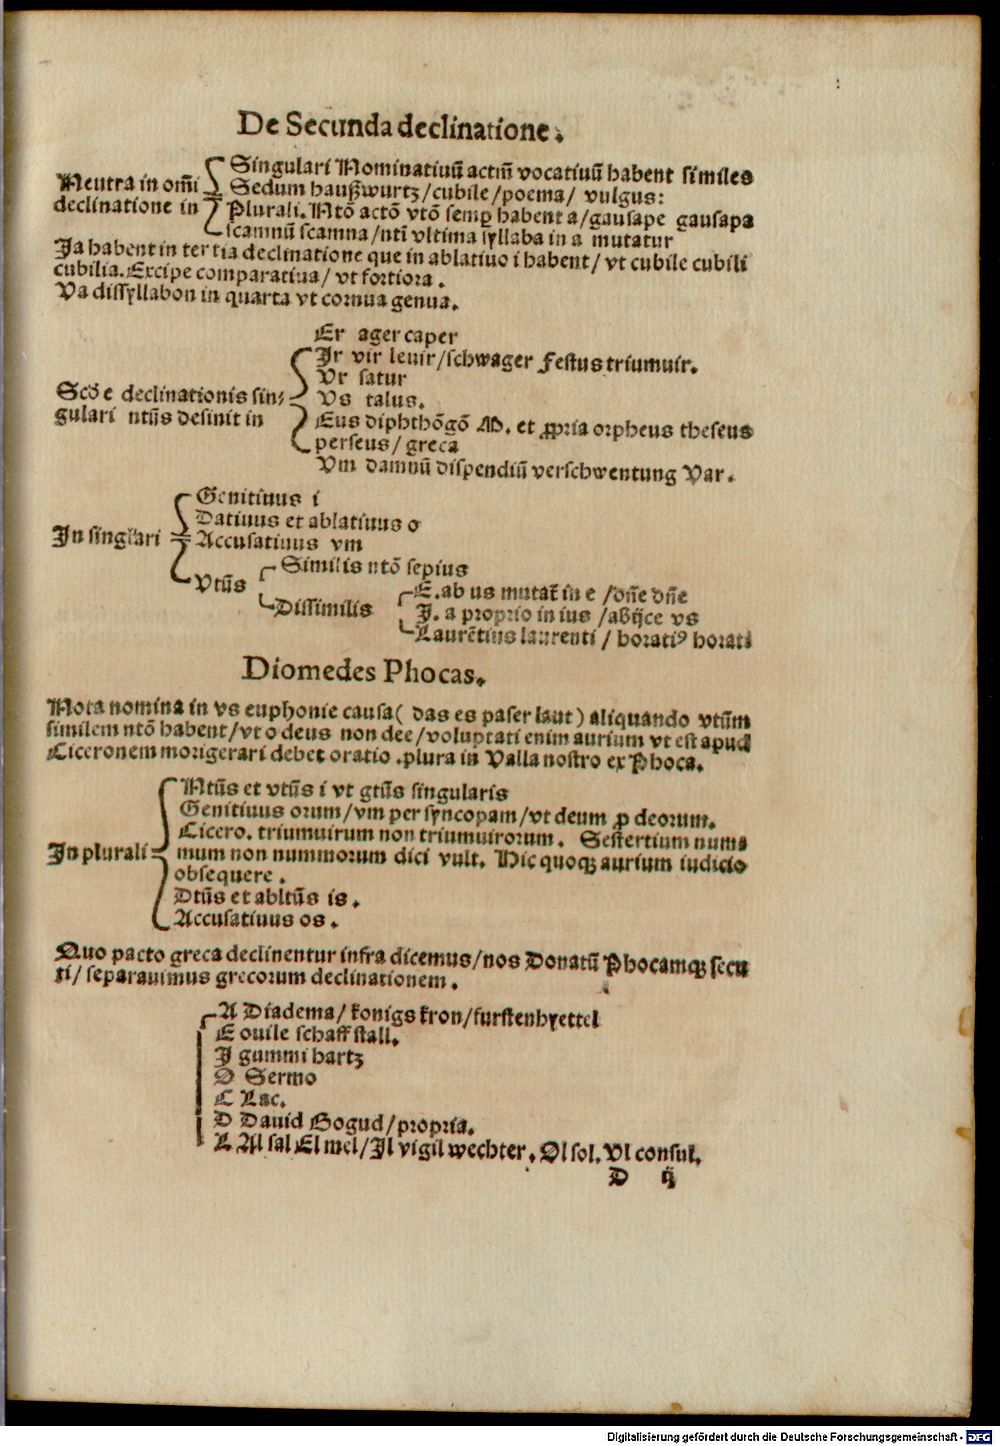 De Secunda declinatione.
Neutra in om̄i declinatione in
Singulari Nominatiuū actm̄ vocatiuū habent similes
Sedum haußwurtz/cubile/poema/ vulgus:
Plurali. Ntō actō vtō semꝑ habent a/gausape gausapa
scamnū scamna/ntī vltima syllaba in a mutatur
Ia habent in tertia declinatione que in ablatiuo i habent/ vt cubile cubili
cubilia. Excipe comparatiua/ vt fortiora.
Va dissyllabon in quarta vt cornua genua.
Scd̄e declinationis sin⸗
gulari ntūs desinit in
Er ager caper
Ir vir leuir/schwager Festus triumuir.
Vr satur
Vs talus.
Eus diphthōgō M. et ꝓpria orpheus theseus
perseus/ greca
Vm damnū dispendiū verschwentung Var.
In singlari
Genitiuus i
Datiuus et ablatiuus o
Accusatiuus vm
Vtūs
Similis ntō sepius
Dissimilis
E. ab us mutat̄ in e /dn̄e dn̄e
I. a proprio in ius /abijce vs
Laurētius laurenti / horatiꝰ horati
Diomedes Phocas.
Nota nomina in vs euphonie causa( das es paser laut) aliquando vtūm
similem ntō habent/vt o deus non dee/voluptati enim aurium vt est apud
Ciceronem morigerari debet oratio .plura in Valla nostro ex Phoca.
In plurali
Ntūs et vtūs i vt gtūs singularis
Genitiuus orum/vm per syncopam/vt deum ꝓ deorum.
Cicero. triumuirum non triumuirorum. Sestertium num⸗
mum non nummorum dici vult. Hic quoqꝫ aurium iudicio
obsequere.
Dtūs et abltūs is.
Accusatiuus os.
Quo pacto greca declinentur infra dicemus/nos Donatū Phocamqꝫ secu
ti/ separauimus grecorum declinationem.
A Diadema/ konigs kron/furstenhyettel
E ouile schaff stall.
I gummi hartz
O Sermo
C Lac.
D Dauid Bogud/propria.
L Al sal El mel/Il vigil wechter. Ol sol. Vl consul.
D ij
Digitalisierung gefördert durch die Deutsche Forschungsgemeinschaft - DFG